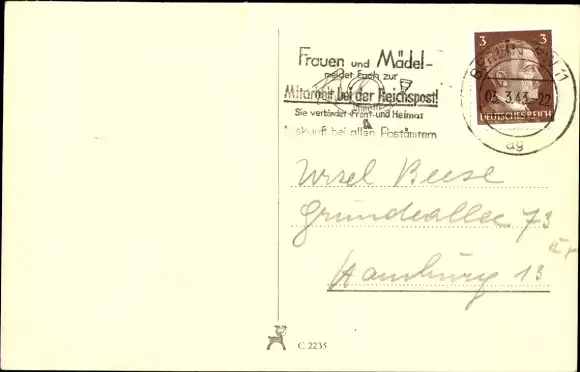 Frauen und Mädel-
meldet Euch zur
Mitarbeit bei der Reichspost!
Sie verbindet Front und Heimat
Auskunft bei allen Postämtern
3 3
DEUTSCHES REICH
BERLIN SW 11
03.3.43.-22
ag
Ursel Beese
Grindelallee 73
Hamburg 13
C 2235